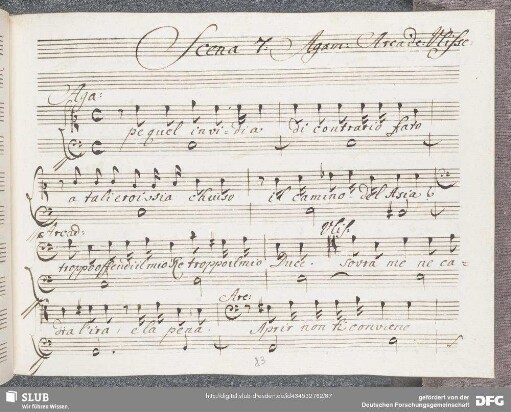 Scena 7. Agam: Arcade. Ulisse.
Aga:
pe quel invi=dia di contrario fato
a tali eroi sia chiuso il camino del Asia
Arcad:
troppo offendi il mio Re troppo il mio Duce. sovra me ne ca=
Ulis:
drà l'ira, e la pena. Aprir non ti conviene
Arc:
83
SLUB
Wir führen Wissen.
http://digital.slub-dresden.de/id434932762/87
gefördert von der
Deutschen Forschungsgemeinschaft
DFG